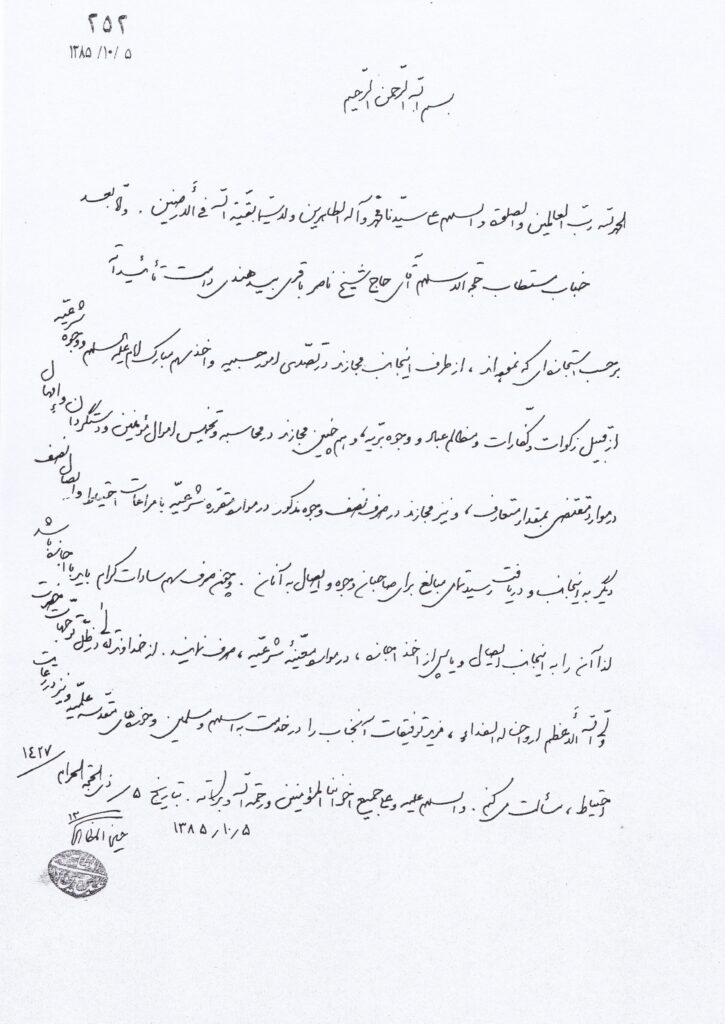 ۲۵۲
۱۳۸۵/۱۰/۵
بسم الله الرّحمن الرّحیم
الحمد لله ربّ العالمین والصلوة والسلام علی سیّدنا محمّد وآله الطاهرین ولاسیّما بقیّة الله فی الأرضین . وبعد
جناب مستطاب حجة الاسلام آقای حاج شیخ ناصر باقری بیدهندی دامت تأئیداته
برحسب استجازه‌ای که نموده‌اند ، از طرف اینجانب مجازند در تصدّی امور حسبیه و اخذ سهم مبارک امام علیه السلام و وجوه شرعیّه
از قبیل زکوات و کفّارات و مظالم عباد و وجوه برّیه، و هم چنین مجازند در محاسبه و تخمیس اموال مؤمنین و دستگردان و إمهال
در موارد مقتضی بمقدار متعارف ، و نیز مجازند در صرف نصف وجوه مذکور در موارد مقرره شرعیّه با مراعات احتیاط و ایصال نصف
دیگر به اینجانب و دریافت رسیدهای مبالغ برای صاحبان وجوه و ایصال به آنان . و چون صرف سهم سادات کرام باید با اجازه باشد
لذا آن را به اینجانب ایصال و یا پس از اخذ اجازه ، در موارد معیّنهٔ شرعیّه ، صرف نمایند . از خداوند تعالی در ظلّ توجّهات حضرت
ولیّ الله الأعظم ارواحنا له الفداء ، مزید توفیقات آنجناب را در خدمت به اسلام و مسلمین و حوزه‌های مقدسه علمیّه و نیز در رعایت
احتیاط ، مسألت می کنم . والسلام علیه وعلی جمیع اخواننا المؤمنین ورحمة الله وبرکاته . بتاریخ ۵ / ذی الحجة الحرام / ۱۴۲۷
۱۳۸۵/۱۰/۵